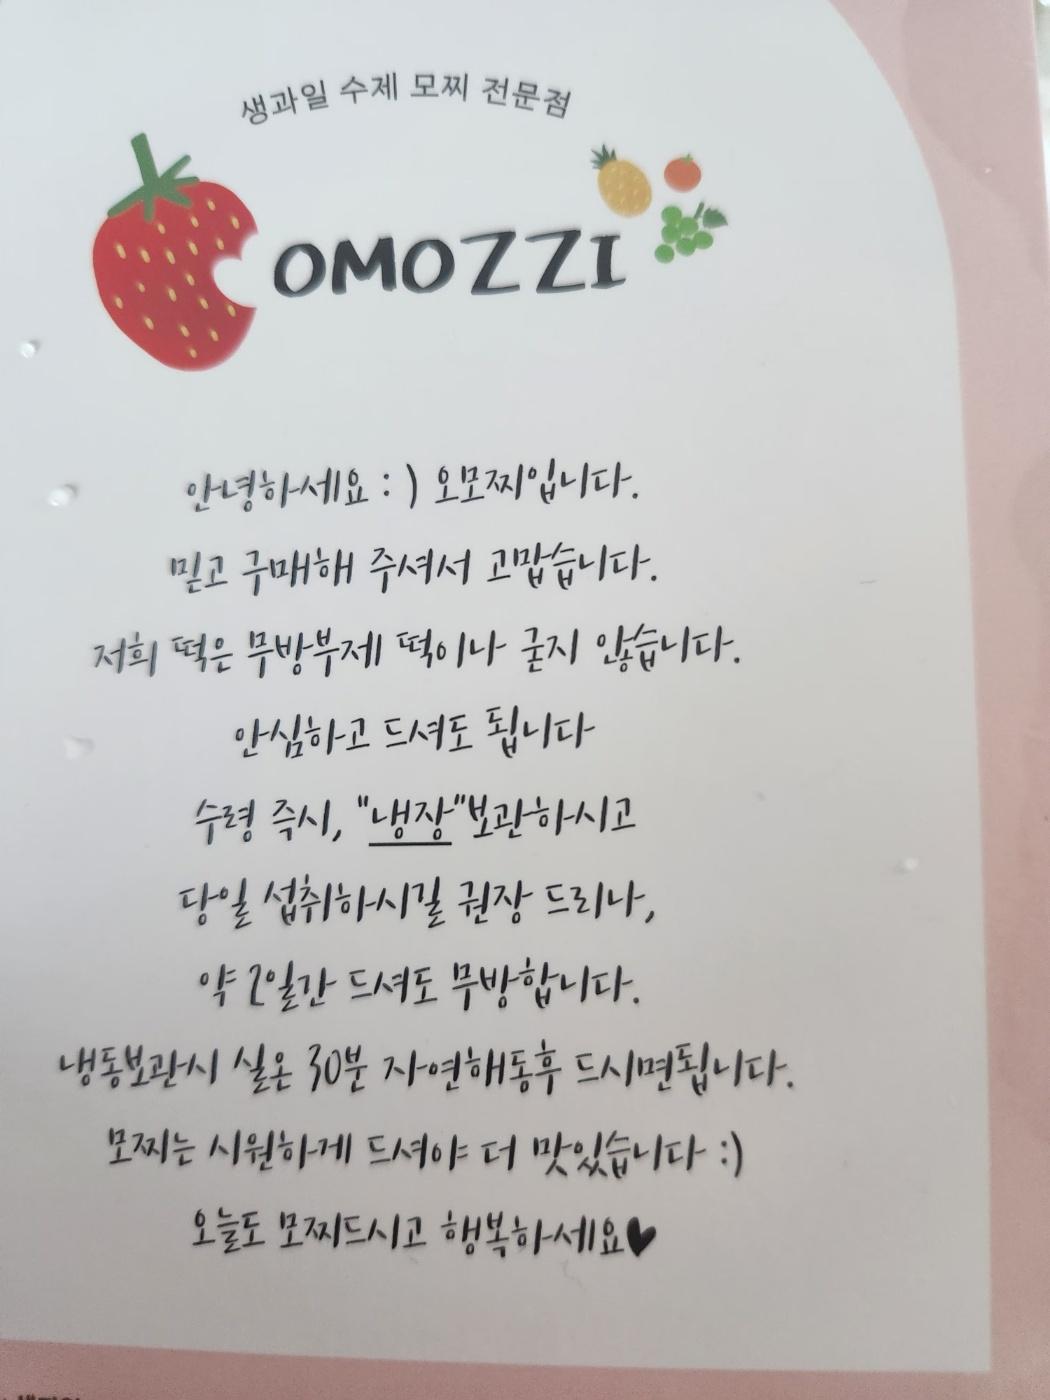 생과일 수제 모찌 전문점
OMOZZI
안녕하세요 : ) 오모찌입니다.
믿고 구매해 주셔서 고맙습니다.
저희 떡은 무방부제 떡이나 굳지 않습니다.
안심하고 드셔도 됩니다
수령 즉시, "냉장"보관하시고
당일 섭취하시길 권장 드리나,
약 2일간 드셔도 무방합니다.
냉동보관시 실온 30분 자연해동후 드시면됩니다.
모찌는 시원하게 드셔야 더 맛있습니다 :)
오늘도 모찌드시고 행복하세요♥